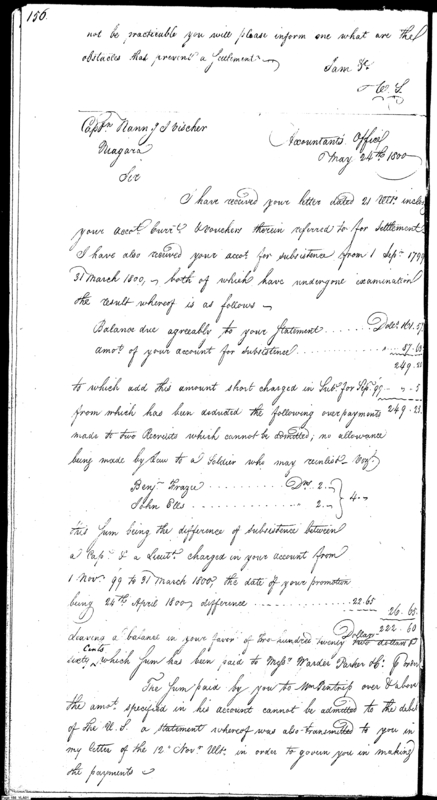 156.
not be practicable you will please inform me what are the
obstacles that prevent a settlement
I am &c
W. S.
Capt.n Nanng I Vischer
Niagara
Accountants Office
May 24th 1800
Sir
I have received your letter dated 21 Ulto. inclos
your accot. curr.t & vouchers therein referred to for settlement
I have also received your accot. for subsistence from 1 Sepr. 1799
31 March 1800, both of which have undergone examination
the result whereof is as follows
Balance due agreeably to your statement Dolls.
amot. of your account for subsistence 57.
249.25
to which add this amount short charged in Subs. for Sepr. 99
from which has been deducted the following overpayments 249.
made to two Recruits which cannot be admitted; no allowance
being made by Law to a Soldier who may reenlist Vizt
Benjn. Frazee Drs. 2.
John Ells " 2. } 4.
this sum being the difference of subsistence between
a Capn. & a Lieut. charged in your account from
1 Novr. 99 to 31 March 1800, the date of your promotion
being 24th April 1800 difference 22.65
26.65
Dollars 222.60
Leaving a balance in your favor of two hundred twenty two dollars &
sixty Cents, which sum has been paid to Messrs Warder Parker & Co.
The sum paid by you to Wm over & above
the amot. specified in his account cannot be admitted to the debit
of the U. S. a statement whereof was also transmitted to you in
my letter of the 12 Novr. Ulto. in order to govern you in making
the payments